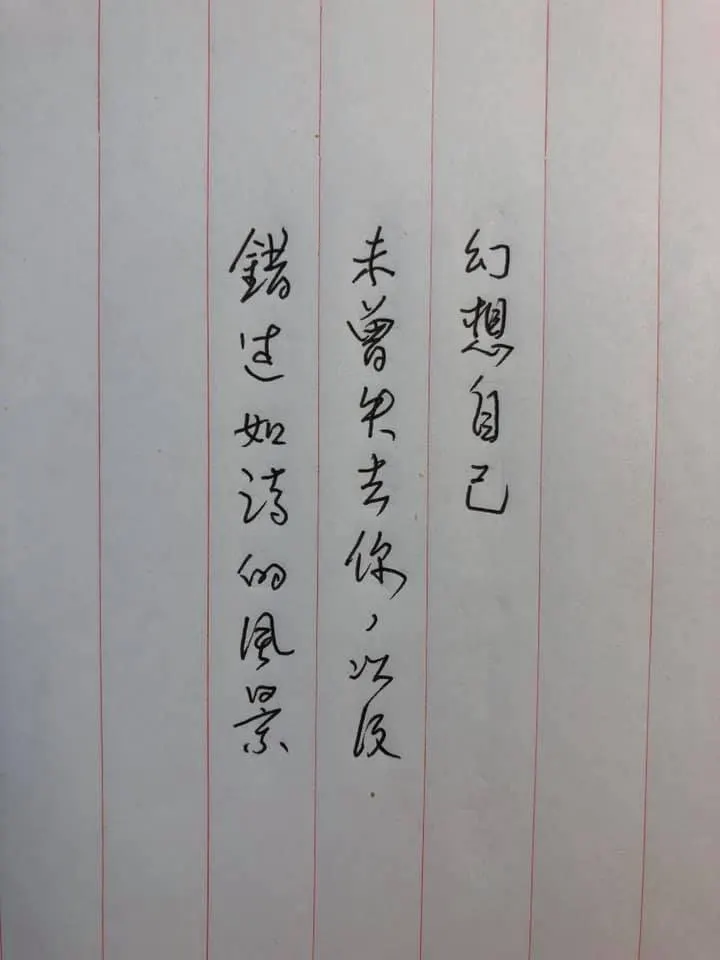 幻想自己
未曾失去你，以及
錯過如詩的風景